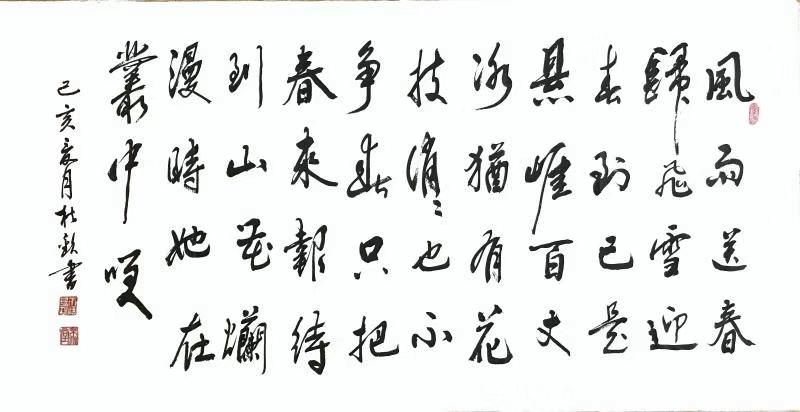 風雨送春
歸飛雪迎
春到已是
悬崖百丈
冰猶有花
枝俏〻也不
争春只把
春來報待
到山花爛
漫時她在
叢中咲
己亥夏月杜書